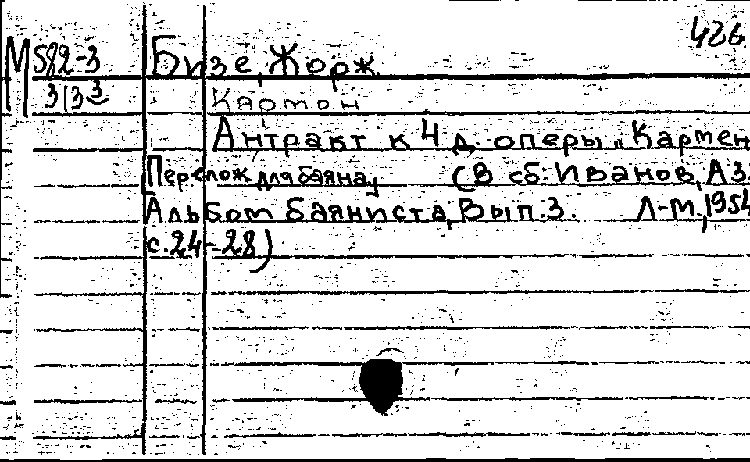 426.
М 582-3 Бизе, Жорж.
3133 Картон
Антракт к 4 д. оперы „Кармен
Перелож для баяна, (В сб: Иванов, А.З.
Альбом баяниста, Вып. 3. Л-М., 1954
с. 24-28)